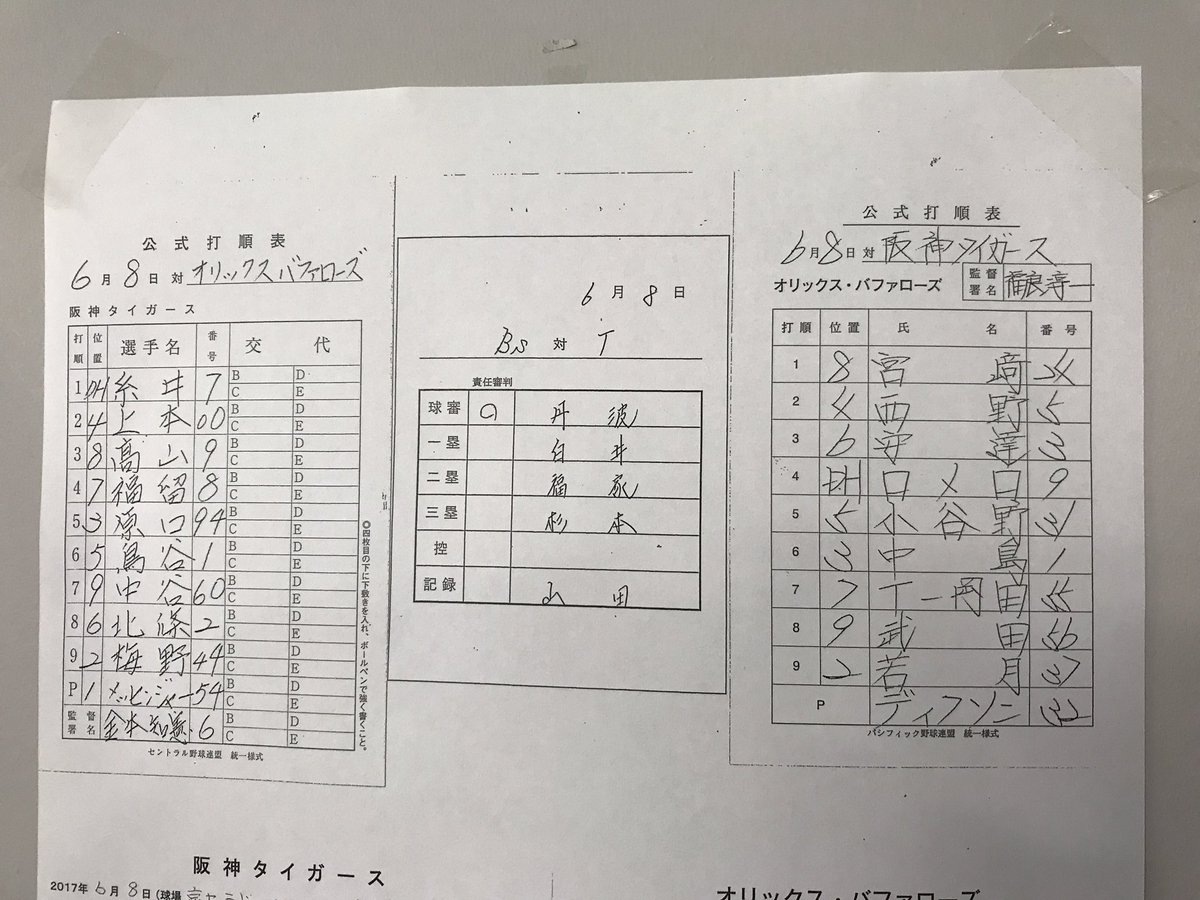 公式打順表
6月8日対オリックスバファローズ
阪神タイガース
打順 位置 選手名 番号 交代
1 DH 糸井 7 B D C E
2 4 上本 00 B D C E
3 8 髙山 9 B D C E
4 7 福留 8 B D C E
5 3 原口 94 B D C E
6 5 鳥谷 1 B D C E
7 9 中谷 60 B D C E
8 6 北條 2 B D C E
9 2 梅野 44 B D C E
P 1 メッセンジャー 54 B D C E
監督署名 金本知憲 6 B D C E
◎四枚目の下に下敷きを入れ、ボールペンで強く書くこと。
セントラル野球連盟 統一様式
6月8日
Bs 対 T
責任審判
球審 丹波
一塁 白井
二塁 福家
三塁 杉本
控
記録 山田
公式打順表
6月8日対阪神タイガース
オリックス・バファローズ 監督署名 福良淳一
打順 位置 氏名 番号
1 8 宮﨑
2 4 西野 5
3 6 安達 3
4 DH ロメロ 9
5 5 小谷野 31
6 3 中島 1
7 7 T-岡田 55
8 9 武田 56
9 2 若月 37
P ディクソン 32
パシフィック野球連盟 統一様式
阪神タイガース
2017年6月8日(球場 京セラド
オリックス・バファローズ